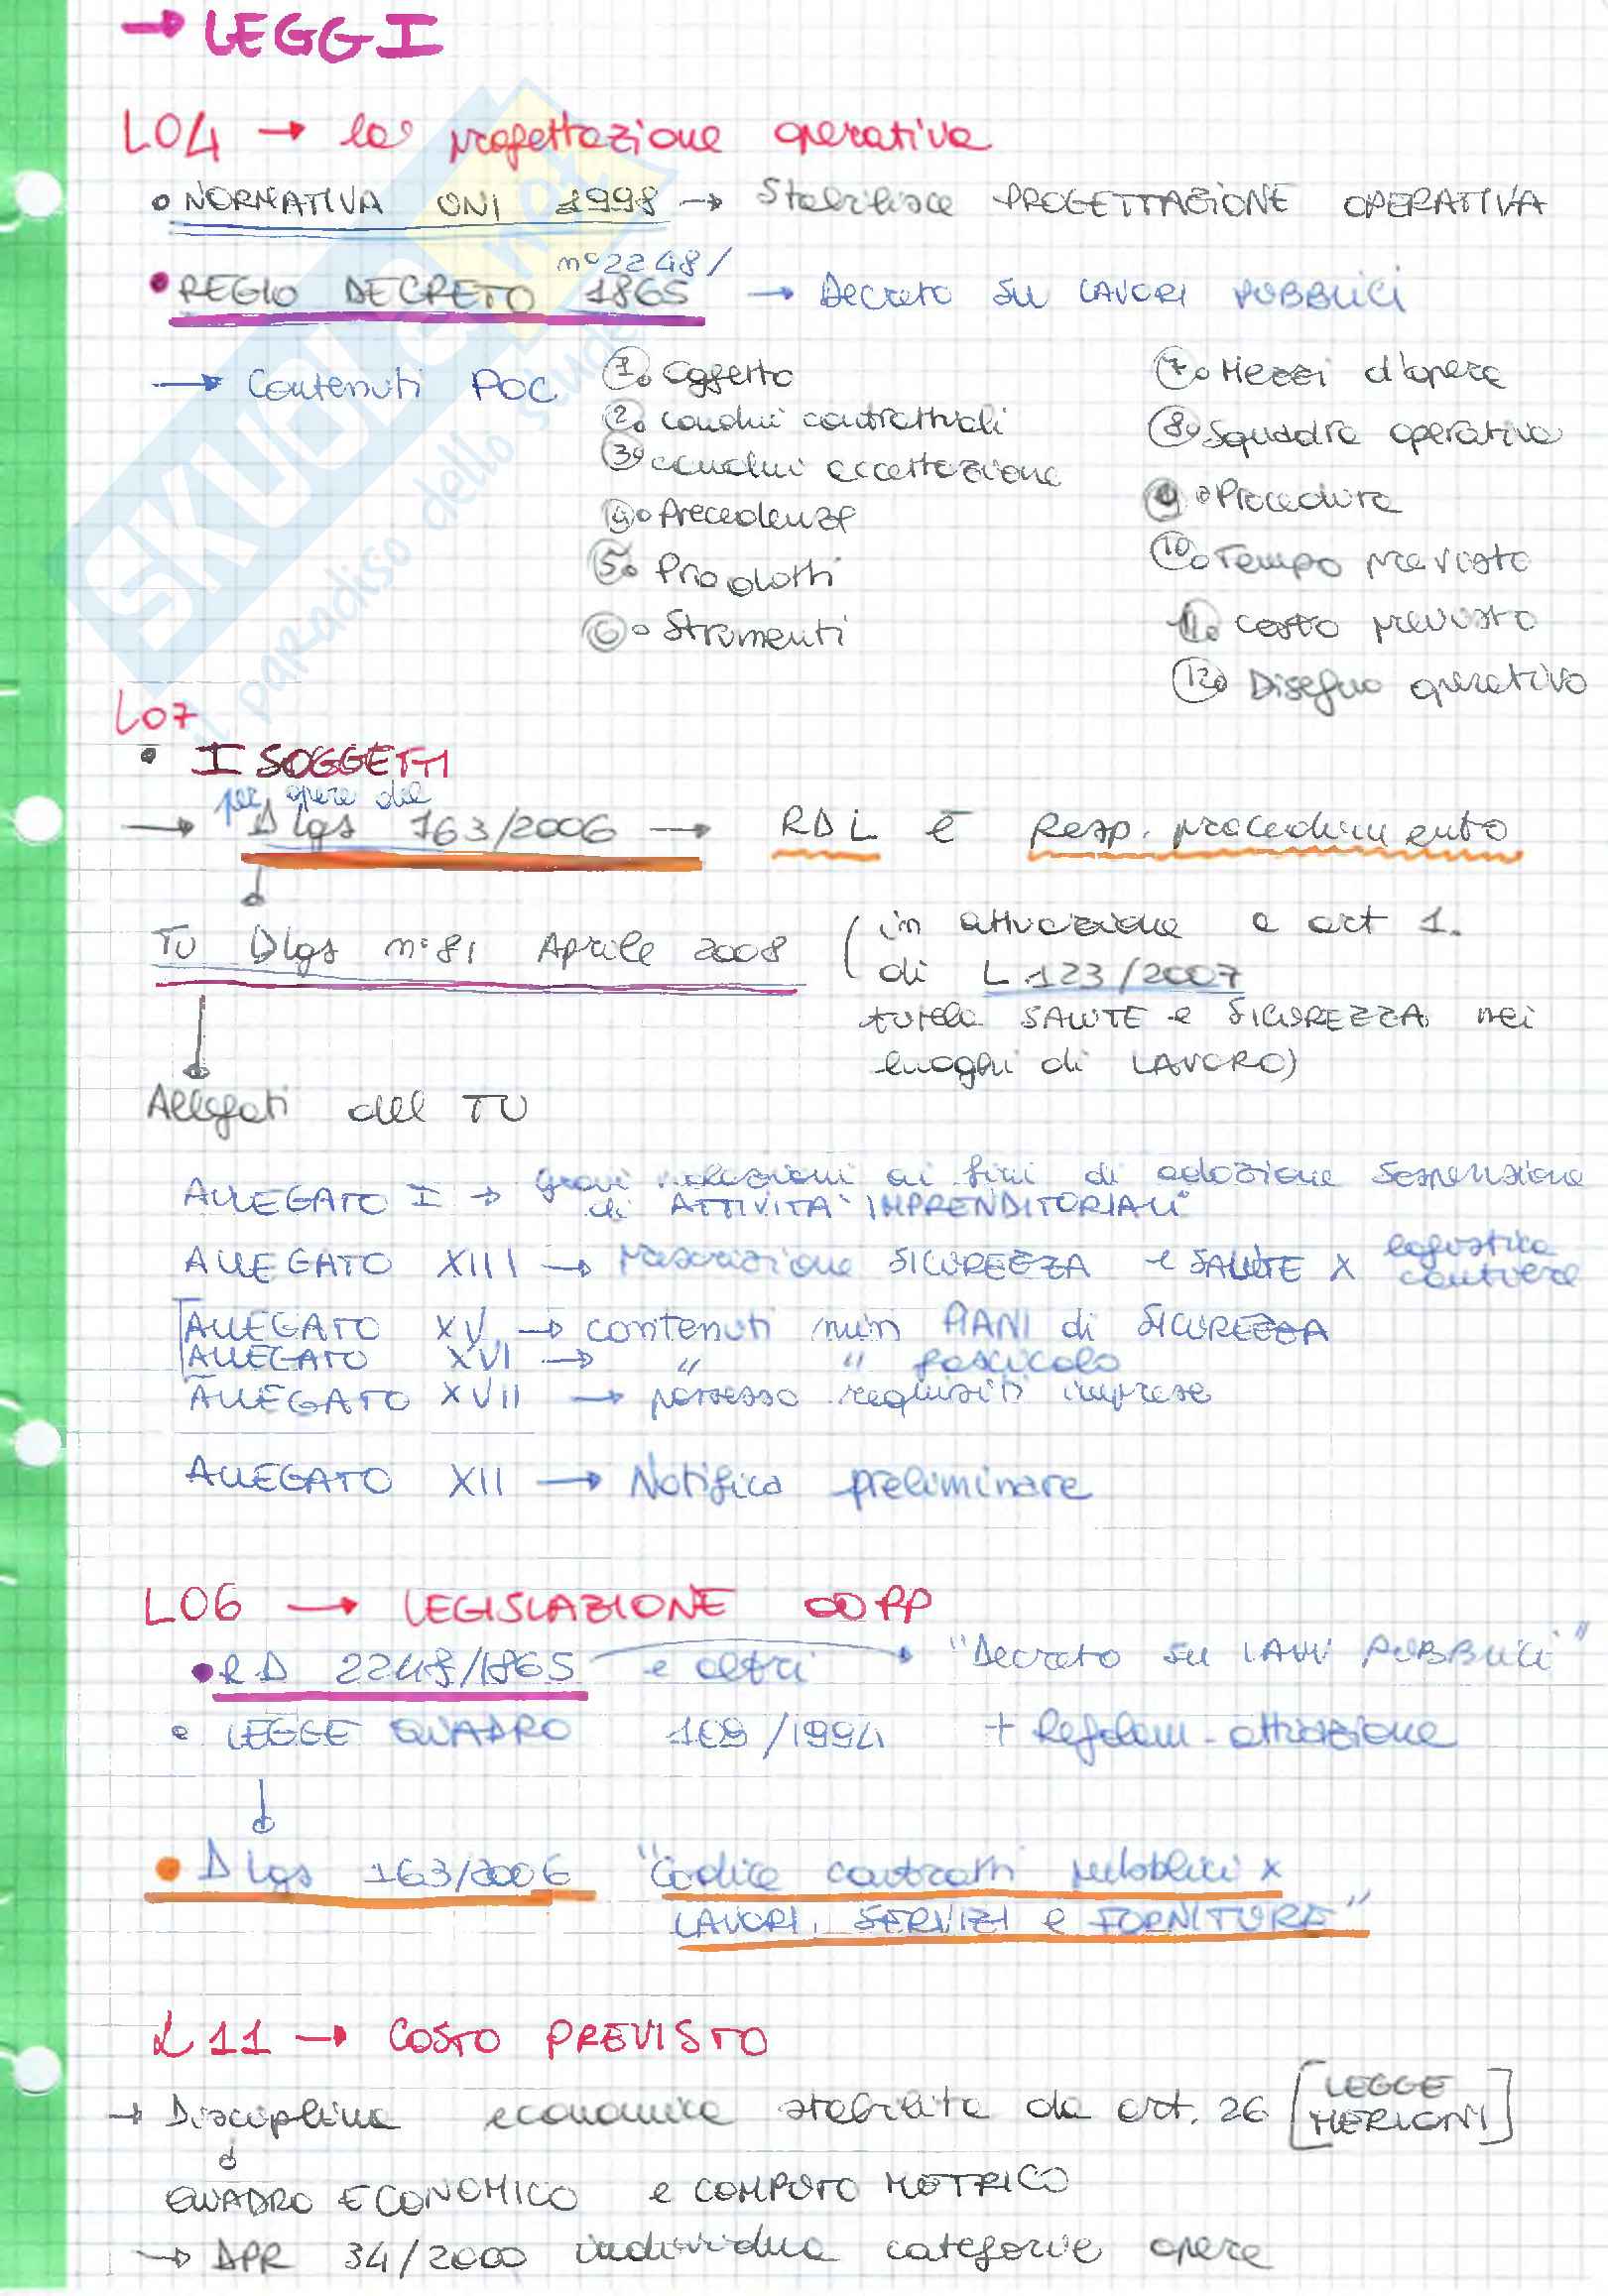 → LEGGI
L04 → la progettazione operativa
• NORMATIVA UNI 1998 → Stabilisce PROGETTAZIONE OPERATIVA
n°2248/
• REGIO DECRETO 1865 → Decreto su LAVORI PUBBLICI
→ Contenuti POC
1. Oggetto
2. condni contrattuali
3. condni accettazione
4. Precedenze
5. Prodotti
6. Strumenti
7. Mezzi d'opera
8. Squadra operativa
9. Procedura
10. Tempo previsto
11. costo previsto
12. Disegno operativo
L07
• I SOGGETTI
per opere del
→ Dlgs 163/2006 → RDL è Resp. procedimento
TU Dlgs n°81 Aprile 2008 (in attuazione a art 1.
di L 123/2007
tutela SALUTE e SICUREZZA nei
luoghi di LAVORO)
Allegati del TU
ALLEGATO I → gravi violazioni ai fini di adozione sospensione
di ATTIVITA' IMPRENDITORIALI"
ALLEGATO XIII → Prescrizione SICUREZZA e SALUTE x logistica
cantiere
ALLEGATO XV → contenuti min PIANI di SICUREZZA
ALLEGATO XVI → " " fascicolo
ALLEGATO XVII → possesso requisiti imprese
ALLEGATO XII → Notifica preliminare
L06 → LEGISLAZIONE OOPP
• RD 2248/1865 e altri → "Decreto su LAVV PUBBLICI"
• LEGGE QUADRO 109/1994 + Regolam. attuazione
• Dlgs 163/2006 "Codice contratti pubblici x
LAVORI, SERVIZI e FORNITURE"
L11 → COSTO PREVISTO
→ Disciplina economica stabilita da art. 26 [LEGGE
MERLONI]
QUADRO ECONOMICO e COMPUTO METRICO
→ DPR 34/2000 individua categorie opere
SKUOLA.net
il paradiso dello